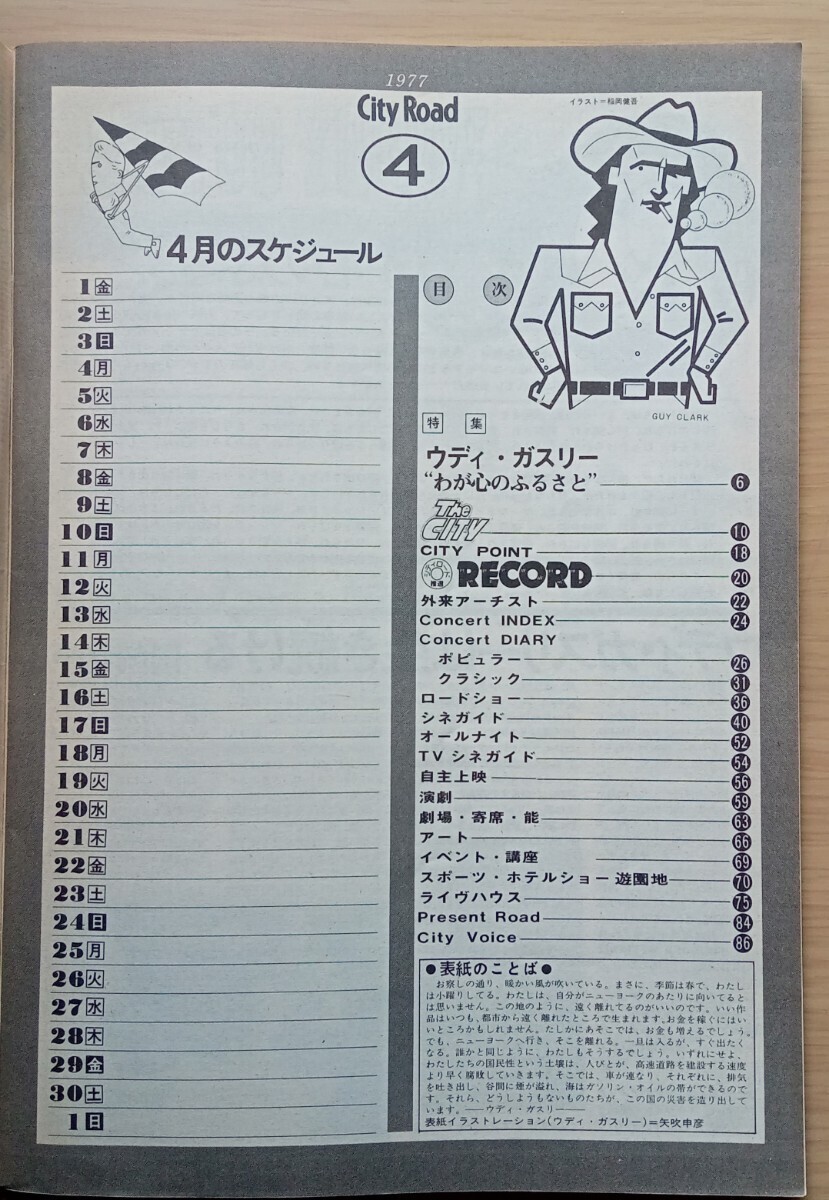 1977
City Road
4
イラスト=稲岡健吾
4月のスケジュール
1 金
2 土
3 日
4 月
5 火
6 水
7 木
8 金
9 土
10 日
11 月
12 火
13 水
14 木
15 金
16 土
17 日
18 月
19 火
20 水
21 木
22 金
23 土
24 日
25 月
26 火
27 水
28 木
29 金
30 土
1 日
目 次
GUY CLARK
特 集
ウディ・ガスリー
“わが心のふるさと” 6
The CITY 10
CITY POINT 18
シティロード推選 RECORD 20
外来アーチスト 22
Concert INDEX 24
Concert DIARY
ポピュラー 26
クラシック 31
ロードショー 36
シネガイド 40
オールナイト 52
TVシネガイド 54
自主上映 56
演劇 59
劇場・寄席・能 63
アート 66
イベント・講座 69
スポーツ・ホテルショー 遊園地 70
ライヴハウス 75
Present Road 84
City Voice 86
●表紙のことば●
お察しの通り、暖かい風が吹いている。まさに、季節は春で、わたし
は小躍りしてる。わたしは、自分がニューヨークのあたりに向いてると
は思いません。この地のように、遠く離れてるのがいいのです。いい作
品はいつも、都市から遠く離れたところで生まれます、お金を稼ぐにはい
いところかもしれません。たしかにあそこでは、お金も増えるでしょう。
でも、ニューヨークへ行き、そこを離れる。一旦は入るが、すぐ出たく
なる。誰かと同じように、わたしもそうするでしょう。いずれにせよ、
わたしたちの国民性という土壌は、人びとが、高速道路を建設する速度
より早く腐敗していきます。そこでは、車が連なり、それぞれに、排気
を吐き出し、谷間に煙が溢れ、海はガソリン・オイルの帯ができるので
す。それら、どうしようもないものたちが、この国の災害を造り出して
います。――ウディ・ガスリー――
表紙イラストレーション(ウディ・ガスリー)=矢吹申彦